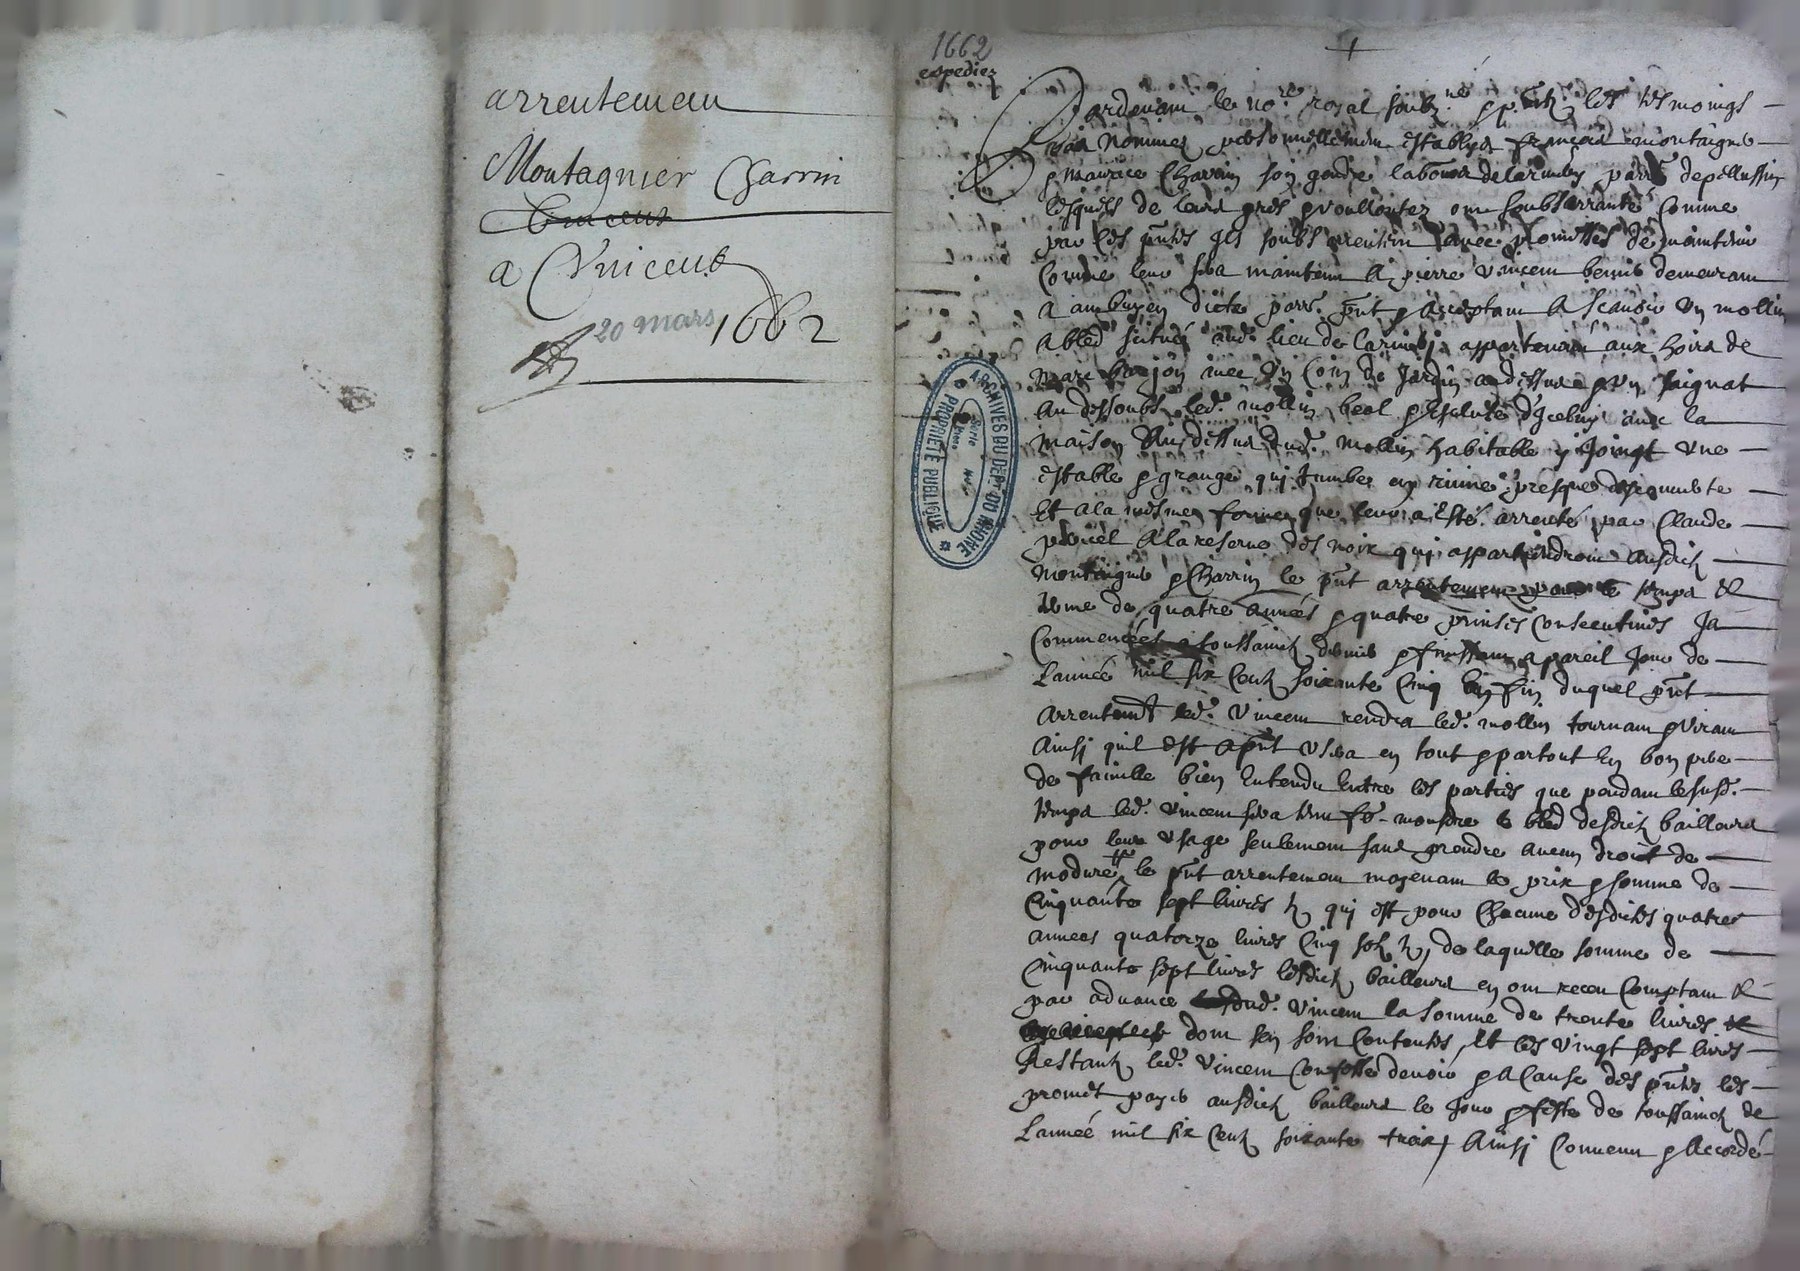 arrentement
Montagnier Charrin
Vincent
a Vincent
20 mars 1662
1662
expediez
ARCHIVES DU DÉPT DU RHÔNE
PROPRIÉTÉ PUBLIQUE
Pardevant le nore royal soubzné & pntz les tesmoings
bas nommez personnellement establys françois montaignie
& maurice Charrin son gendre laboureurs parre de pellussin
lesquels de leurs grés & voullontez ont soubsarranté comme
par les pntes ils soubsarrentent avec promesses de maintenir
comme leur sera maintenu a pierre vincent demeurant
a en dicte parre pnt & acceptant a scavoir un mollin
a bled scitué aud. lieu de appartenant aux hoirs de
marc avec un coin de jardin au dessus & un saignat
au dessoubz led. mollin beal & d'icelluy avec la
maison au dessus dud. mollin habitable y joingt une
estable & grange qui tumbe en ruine presque descouverte
Et a la mesme forme que leur a esté arrenté par Claude
a la reserve des noix qui appartiendront ausdictz
montaignie & Charrin le pnt arrentement pour le temps &
terme de quatre années & quatre prinses consecutives ja
commencées a toussainctz dernie & finissant a pareil jour de
l'année mil six centz soixante cinq en fin duquel pnt
arrentemt led. vincent rendra led. mollin tournant & virant
ainsi quil est a pnt usera en tout & partout en bon pere
de famille bien entendu entre les parties que pendant le susd.
temps led. vincent sera tenu fe moudre le bled desdictz bailleurs
pour leur usage seulement sans prendre aucun droict de
modure le pnt arrentement moyenant le prix & somme de
cinquante sept livres tz qui est pour chacune desdictes quatre
annees quatorze livres cinq solz tz, de laquelle somme de
cinquante sept livres lesdictz bailleurs en ont receu comptant &
par advance dud. vincent la somme de trente livres
dont sen sont contentés, Et les vingt sept livres
restantz led. vincent confesse devoir & a cause des pntes les
promet payer ausdictz bailleurs le jour & feste de toussainctz de
l'année mil six centz soixante trois, Ainsi convenu & accordé